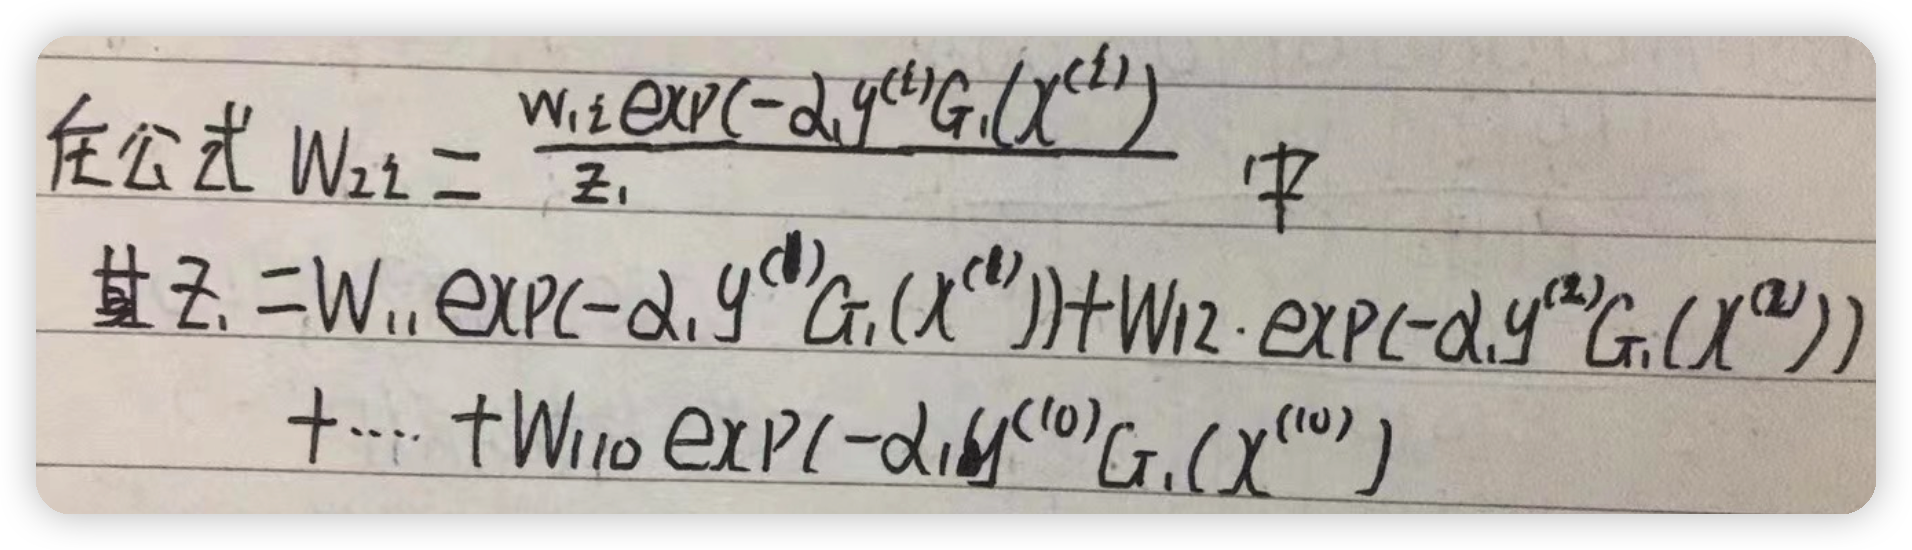 在公式 W₂ᵢ = \frac{w₁ᵢ exp(-α₁y⁽ⁱ⁾G₁(x⁽ⁱ⁾)}{z₁} 中
其z₁ = W₁₁ exp(-α₁y⁽¹⁾G₁(x⁽¹⁾))+W₁₂·exp(-α₁y⁽²⁾G₁(x⁽²⁾))
+···· +W₁₁₀ exp(-α₁y⁽¹⁰⁾G₁(x⁽¹⁰⁾)